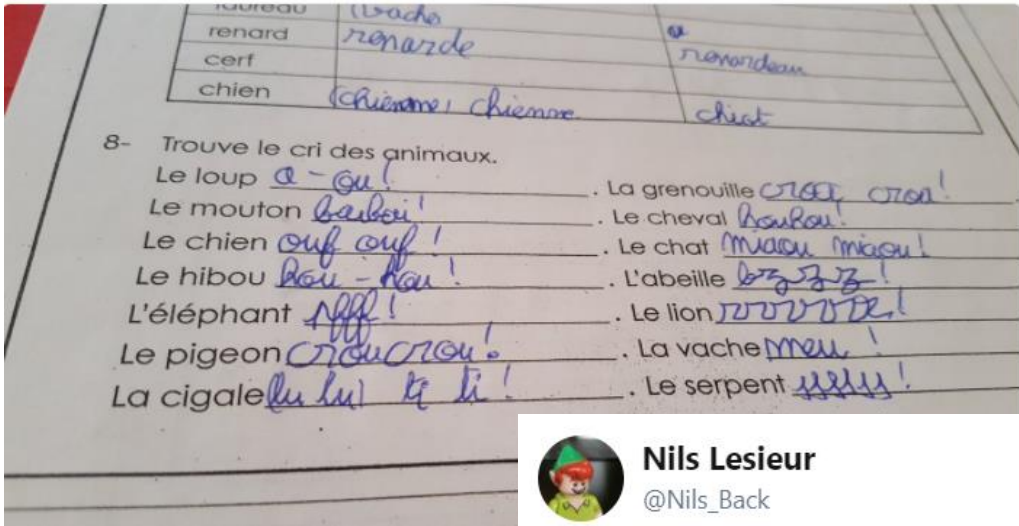 taureau (vache
renard renarde renardeau
cerf
chien (chienne, chienne chiot
8- Trouve le cri des animaux.
Le loup a-ou! . La grenouille croa croa! .
Le mouton . Le cheval houhou!
Le chien ouf ouf ! . Le chat miaou miaou!
Le hibou hou-hou! . L'abeille bzzzz!
L'éléphant pfff! . Le lion
Le pigeon croucrou! . La vache meu !
La cigale (lu lu) ti ti ! . Le serpent
Nils Lesieur
@Nils_Back